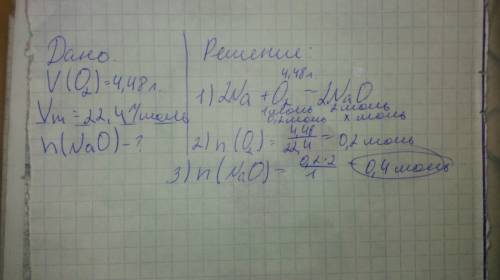 Дано.
V(O₂)=4,48л.
Vm = 22,4 л/моль
n(NaO)-?
Решение:
4,48л
1) 2Na + O₂ = 2NaO
1моль 2моль
0,2моль x моль
2) n(O₂) = 4,48/22,4 = 0,2 моль
3) n(NaO) = 0,2·2/1 = 0,4 моль